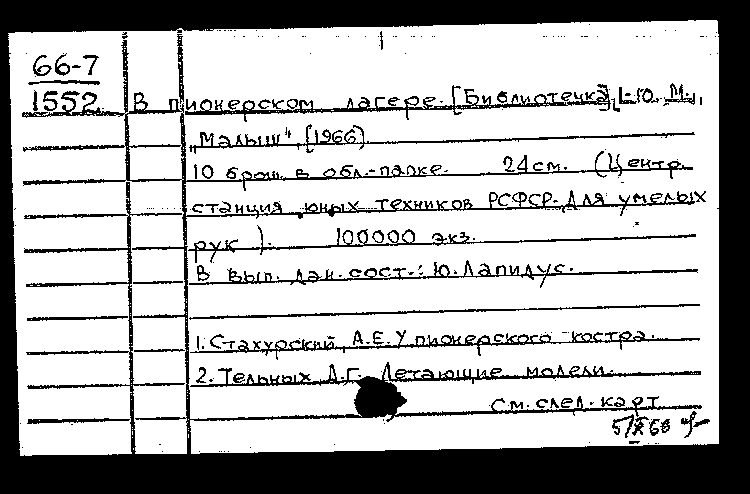 66-7
1552
В пионерском лагере. [Библиотечка]. М.,
„Малыш", [1966]
10 брош. в обл.-папке. 24см. (Центр.
станция юных техников РСФСР. Для умелых
рук). 100000 экз.
В вып. дан. сост.: Ю. Лапидус.
1. Стахурский, А.Е. У пионерского костра.
2. Тельных А.Г. Летающие модели.
См. след. карт
5/X 66